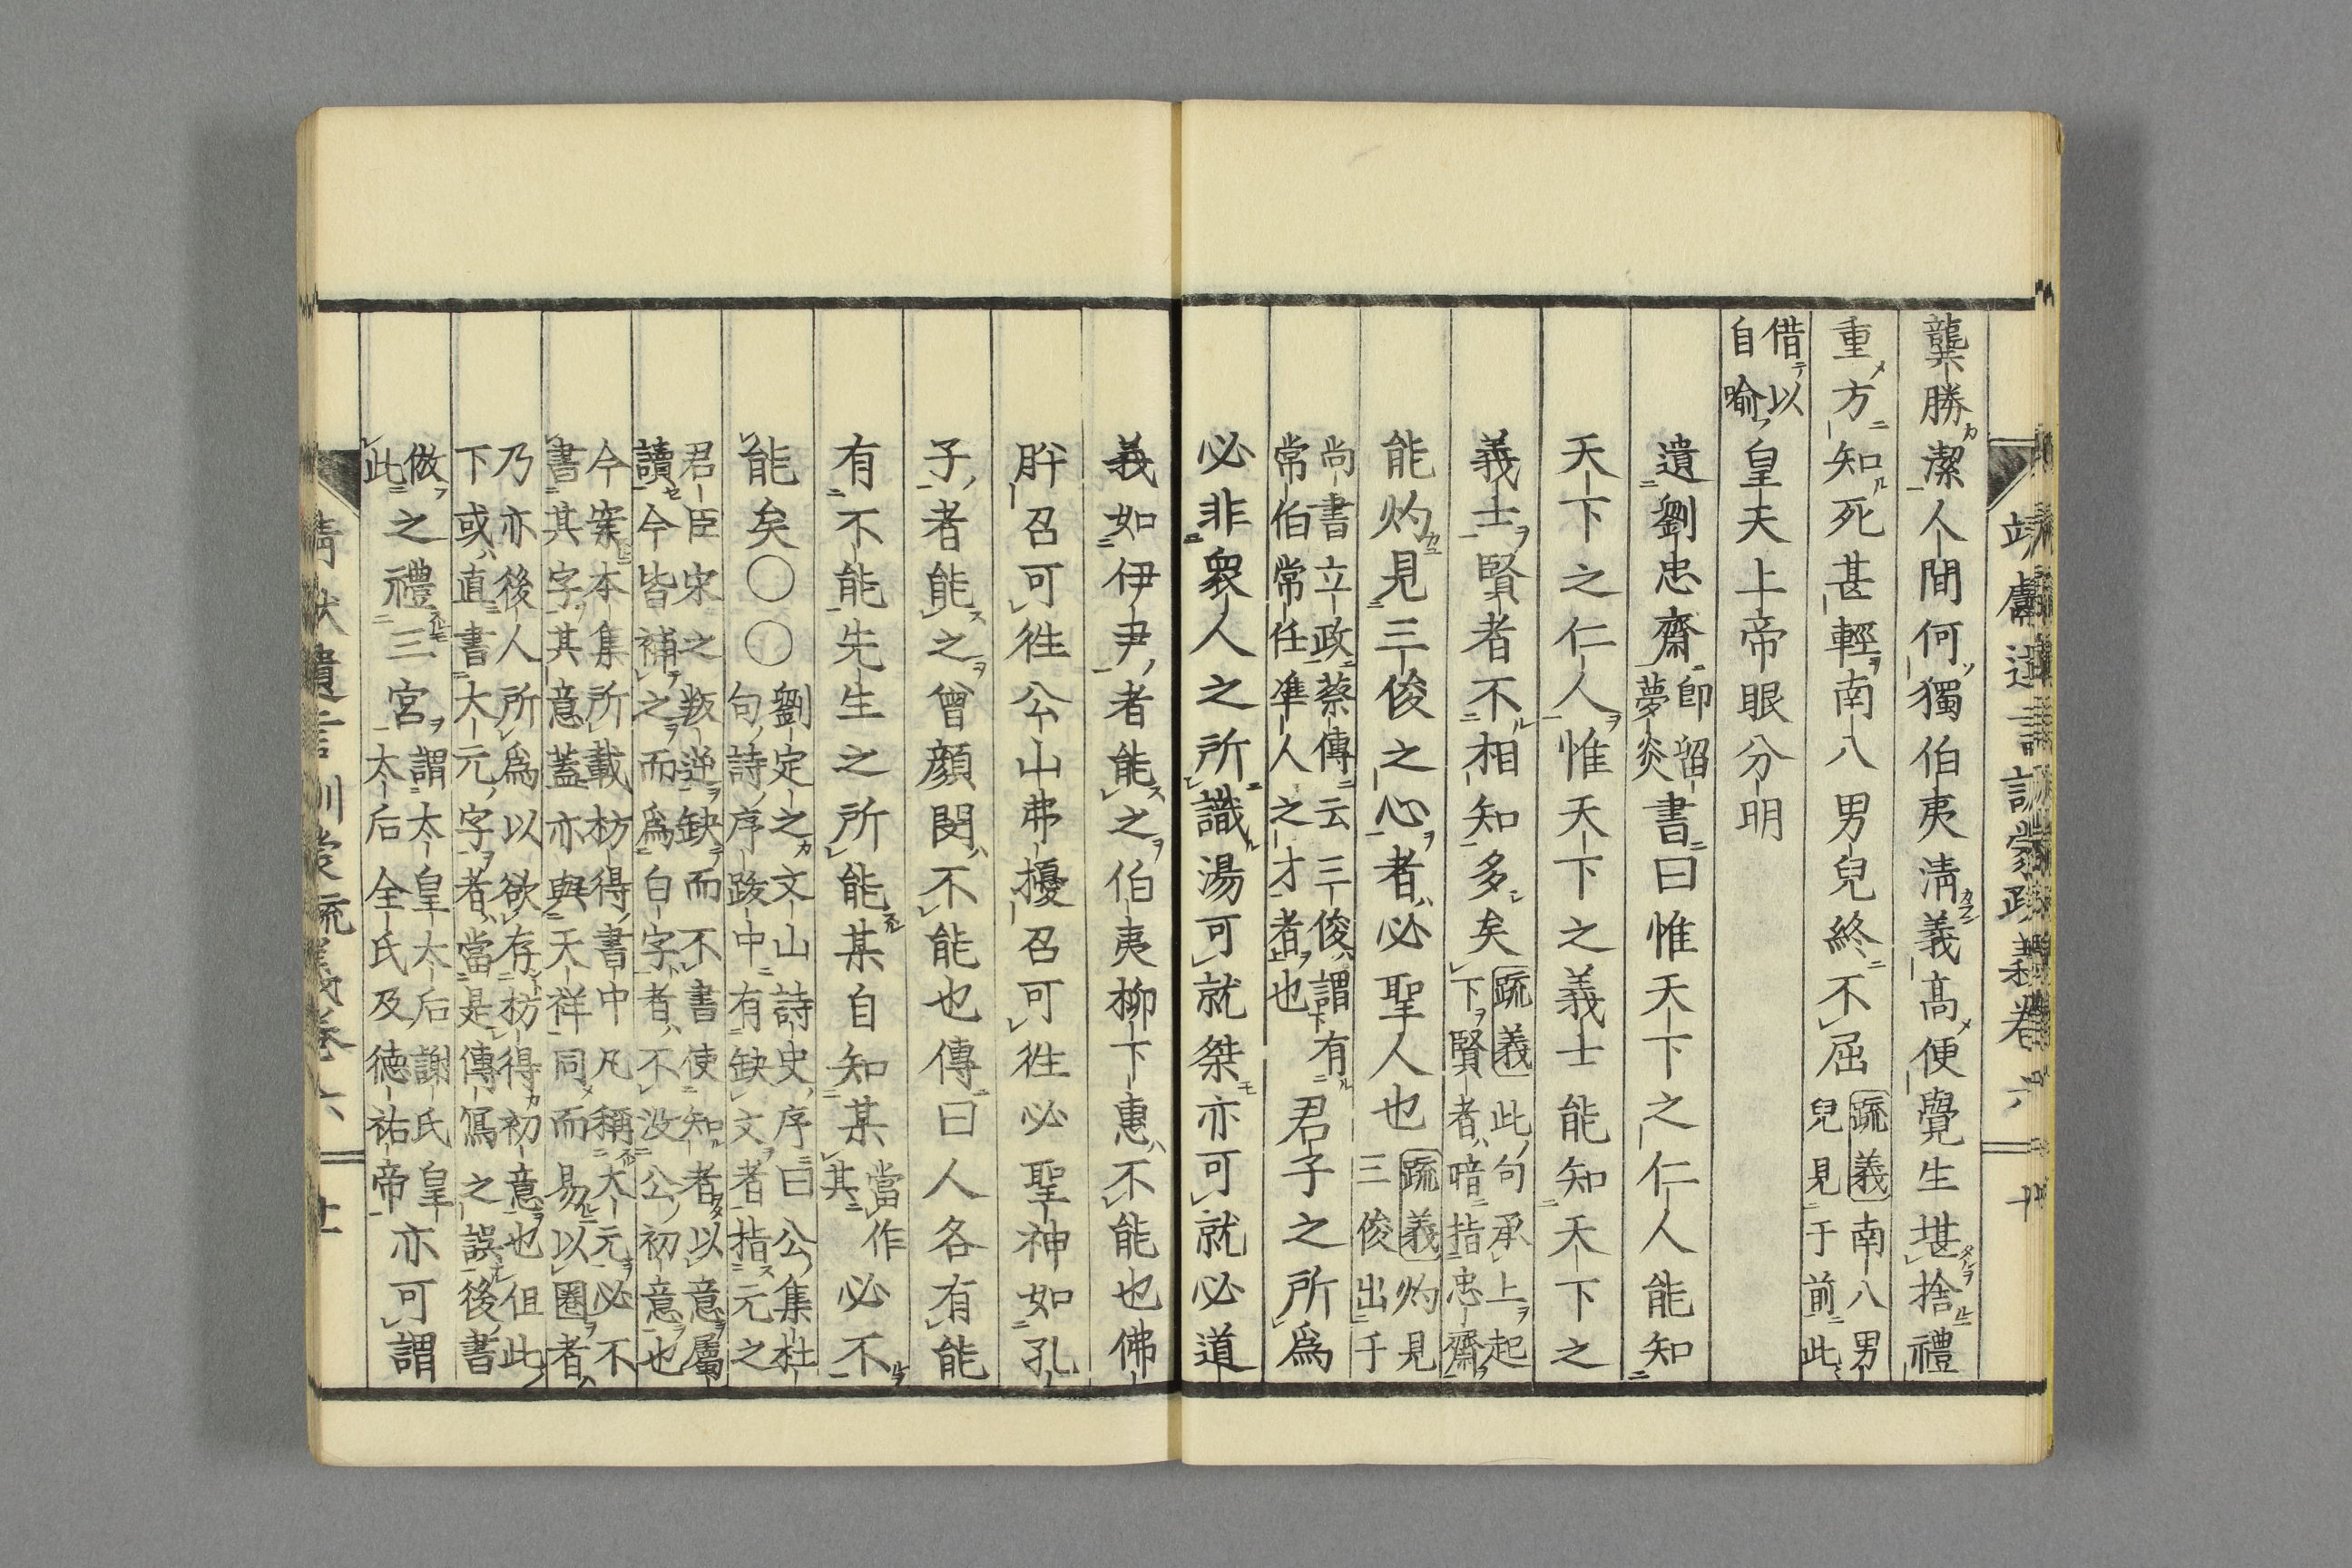 龔勝潔人間何獨伯夷淸義高便覺生堪捨禮
重方知死甚輕南八男兒終不屈疏義南八男
兒見于前此
借以
自喻皇天上帝眼分明
遺劉忠齋卽留
夢炎書曰惟天下之仁人能知
天下之仁人惟天下之義士能知天下之
義士賢者不相知多矣疏義此句承上起
下賢者暗指忠齋
能灼見三俊之心者必聖人也疏義灼見
三俊出于
尚書立政蔡傳云三俊謂有
常伯常任準人之才者也君子之所爲
必非衆人之所識湯可就桀亦可就必道
義如伊尹者能之伯夷柳下惠不能也佛
肸召可徃公山弗擾召可徃必聖神如孔
子者能之曾顏閔不能也傳曰人各有能
有不能先生之所能某自知某當作
其必不
能矣〇〇劉定之文山詩史序曰公集杜
句詩序跋中有缺文者指元之
君臣宋之叛逆缺而不書使知者以意屬
讀今皆補之而爲白字者不沒公初意也
今案本集所載枋得書中凡稱大元必不
書其字其意蓋亦與天祥同而易以圈者
乃亦後人所爲以欲存枋得初意也但此
下或直書大元字者當是傳寫之誤後書
倣
此之禮三宮謂太皇太后謝氏皇
太后全氏及德祐帝亦可謂